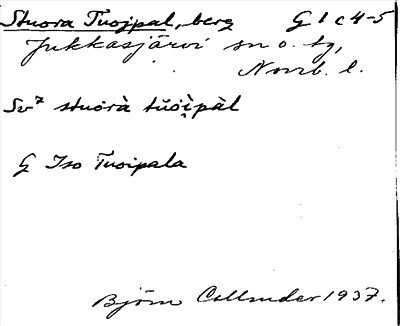 Stuora Tuojpal, berg G 1 c 4-5
Jukkasjärvi sn o. tg,
Norrb. l.
Sv⁷ stuorà tŭöi̭pàl
G Iso Tuoipala
Björn Collinder 1937.